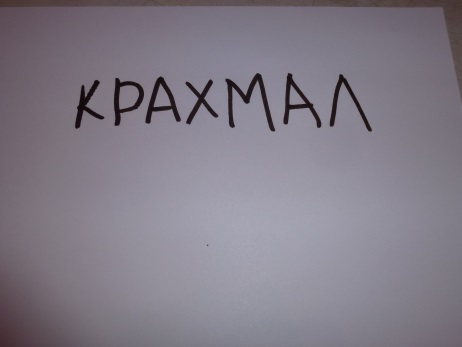 КРАХМАЛ